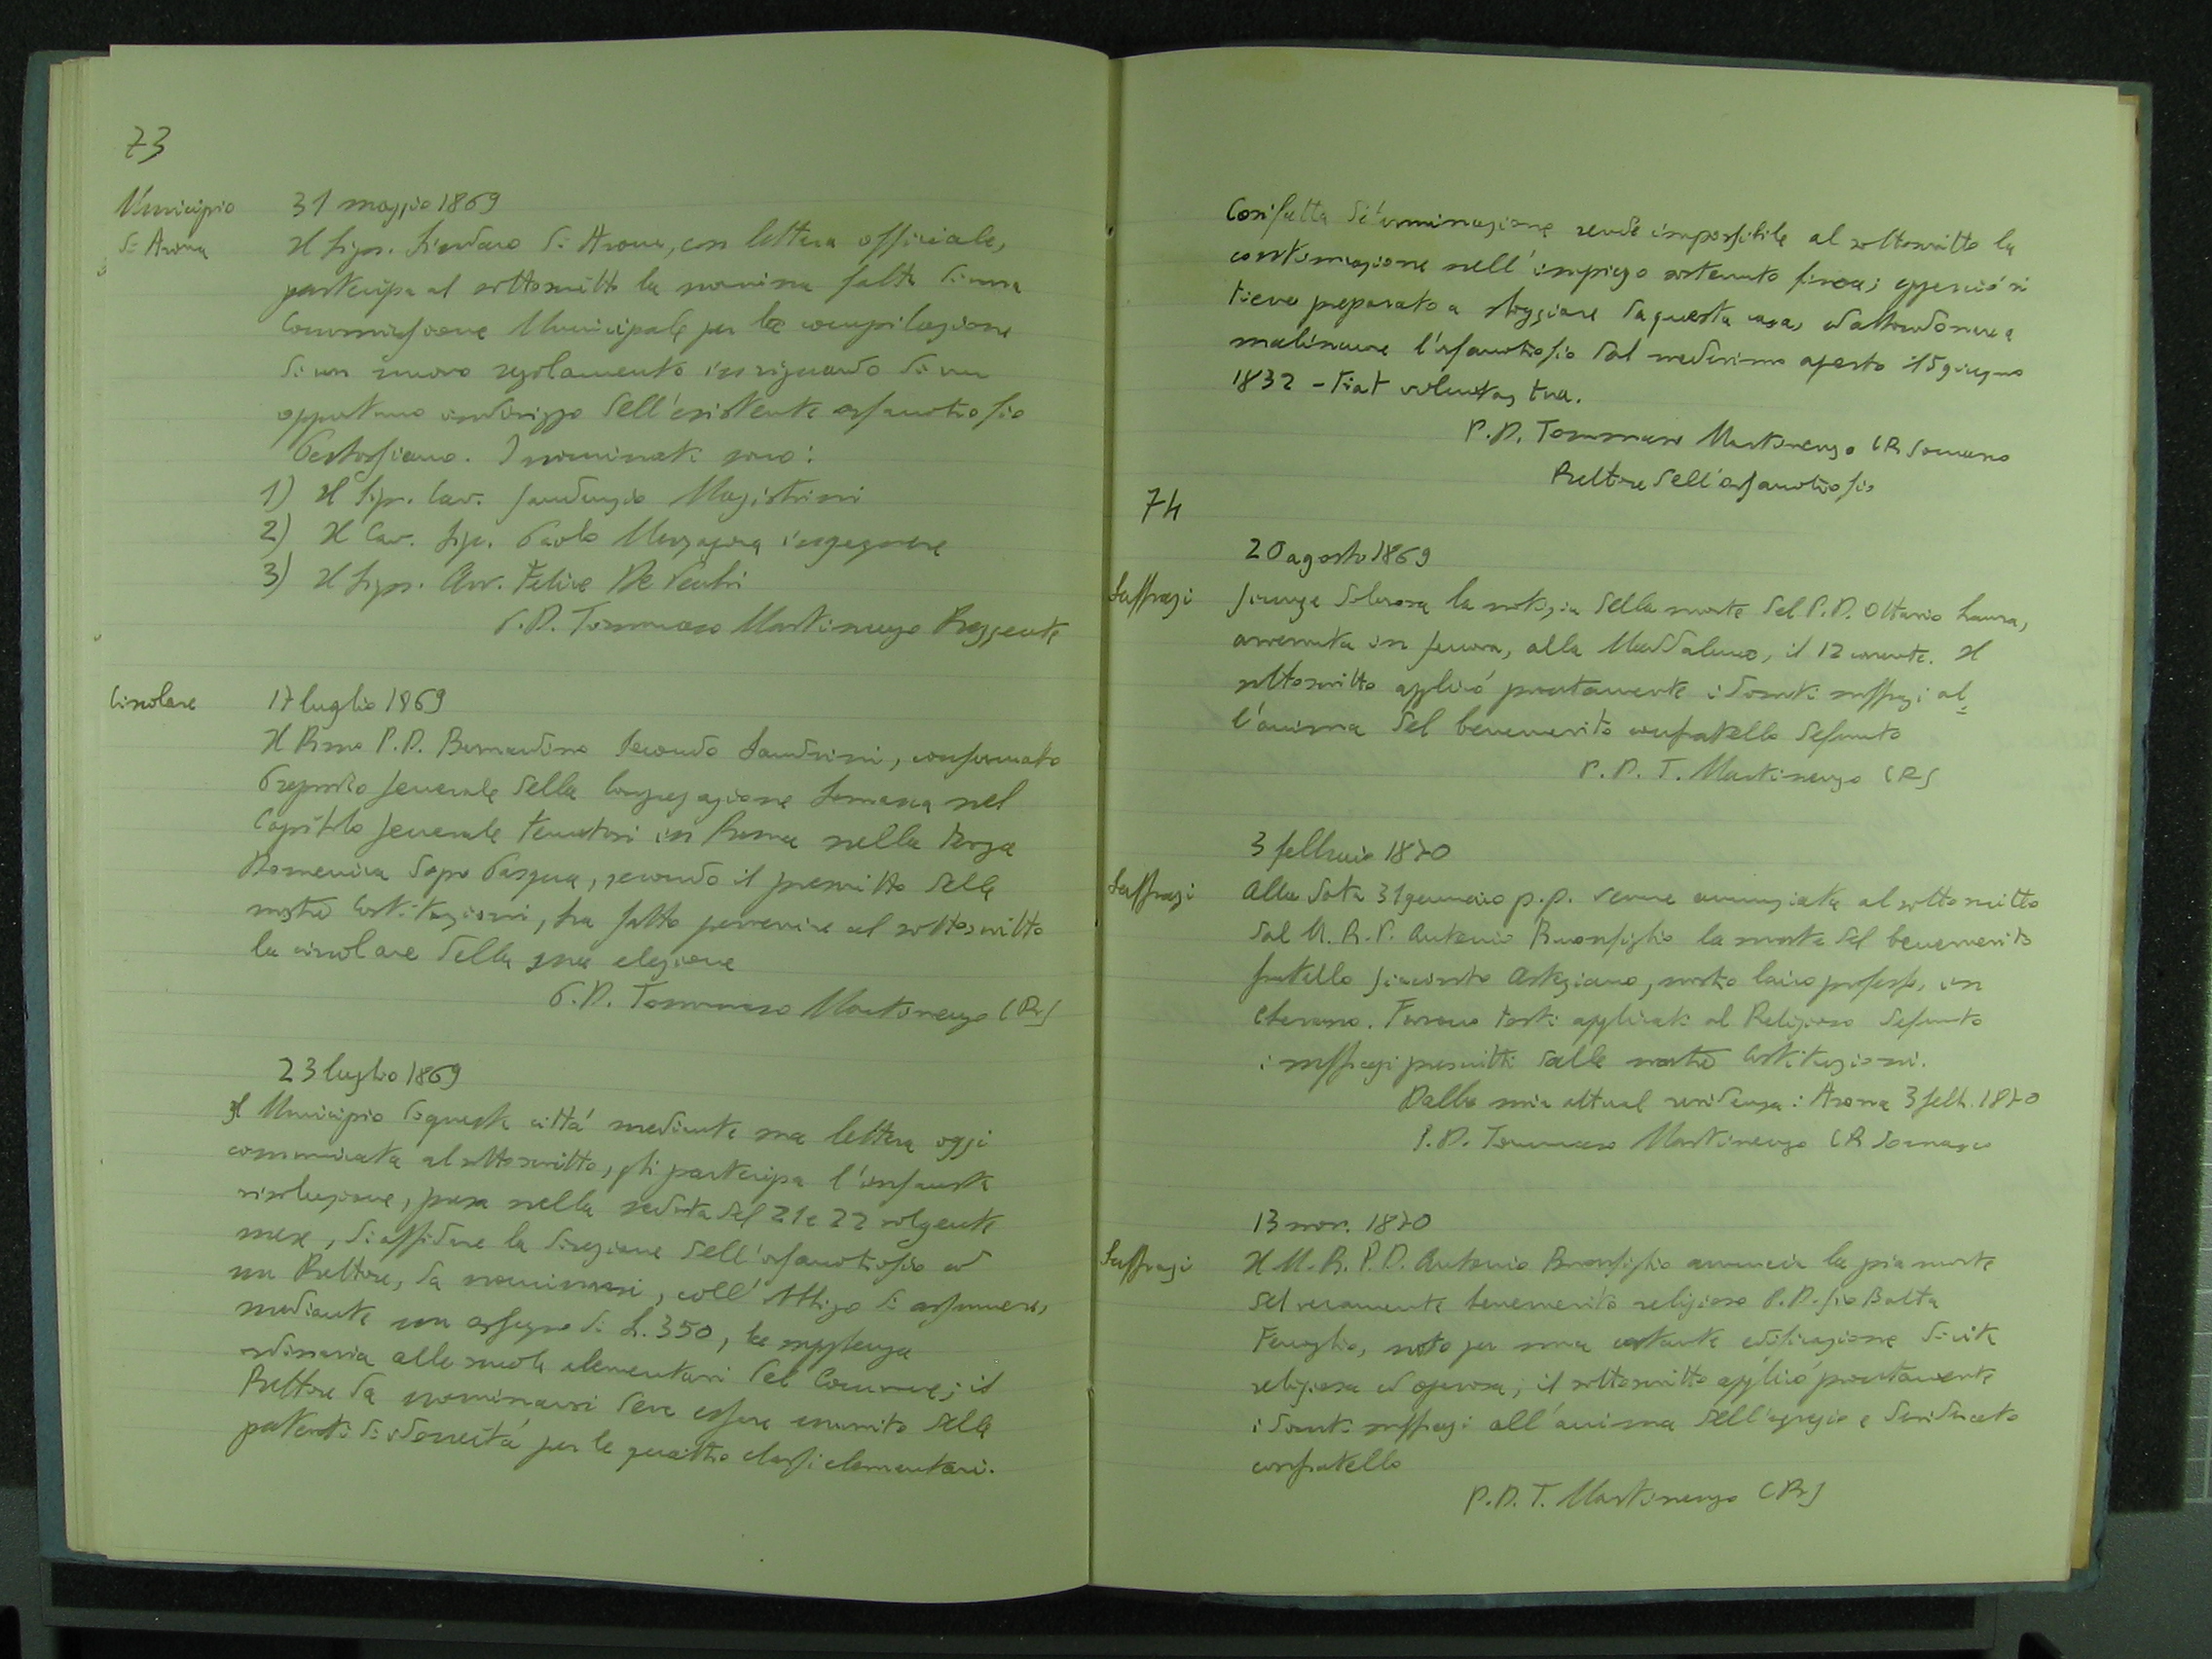 73
Municipio
di Arona
31 maggio 1869
Il Sign. Sindaco di Arona, con lettera officiale,
partecipa al sottoscritto la nomina fatta di una
Commissione Municipale per la compilazione
di un nuovo regolamento in riguardo di un
opportuno indirizzo dell'esistente orfanotrofio
Pertossiano. I nominati sono:
1) Il Sig. Cav. Gaudenzio Magistrini
2) Il Cav. Sig. Paolo Merzagora ingegnere
3) Il Sign. Avv. Felice De
P.D. Tommaso Martinengo Reggente
Circolare
17 luglio 1869
Il Rmo P.D. Bernardino Secondo Sandrini, confermato
Preposito Generale della Congregazione Somasca nel
Capitolo Generale tenutosi in Roma nella terza
Domenica dopo Pasqua, secondo il prescritto delle
nostre Costituzioni, ha fatto pervenire al sottoscritto
la circolare della sua elezione
P.D. Tommaso Martinengo CRS
23 luglio 1869
Il Municipio di questa città mediante sua lettera oggi
comunicata al sottoscritto, gli partecipa l'infausta
risoluzione, presa nella seduta del 21 e 22 volgente
mese, di affidare la direzione dell'orfanotrofio ad
un Rettore, da nominarsi, coll'obbligo di assumersi,
mediante un assegno di L. 350, la supplenza
ordinaria alle scuole elementari del Comune; il
Rettore da nominarsi deve essere munito delle
patenti di idoneità per le quattro classi elementari.
Cosifatta determinazione rende impossibile al sottoscritto la
continuazione nell'impiego sostenuto finora; epperciò si
tiene preparato a sloggiare da questa casa, ed abbandonare a
malincuore l'orfanotrofio dal medesimo aperto il 5 giugno
1832 - Fiat voluntas tua.
P.D. Tommaso Martinengo CR Somasco
Rettore dell'orfanotrofio
74
20 agosto 1869
Suffragi
Giunge dolorosa la notizia della morte del P.D. Ottavio Laura,
avvenuta in Genova, alla Maddalena, il 12 corrente. Il
sottoscritto applicò prontamente i dovuti suffragi al=
l'anima del benemerito confratello defunto
P.D.T. Martinengo CRS
3 febbraio 1870
Suffragi
Alla data 31 gennaio p.p. venne annunziata al sottoscritto
dal M.R.P. Antonio Buonfiglio la morte del benemerito
fratello Giacinto Astegiano, nostro laico professo, in
Cherasco. Furono tosto applicati al Religioso defunto
i suffragi prescritti dalle nostre Costituzioni.
Dalla mia attual residenza: Arona 3 febb. 1870
P.D. Tommaso Martinengo CR Somasco
13 nov. 1870
Suffragi
Il M.R.P.D. Antonio Buonfiglio annuncia la pia morte
del veramente benemerito religioso P.D. Gio Batta
Fenoglio, noto per una costante edificazione di vita
religiosa ed operosa; il sottoscritto applicò prontamente
i dovuti suffragi all'anima dell'egregio e desiderato
confratello
P.D.T. Martinengo CRS